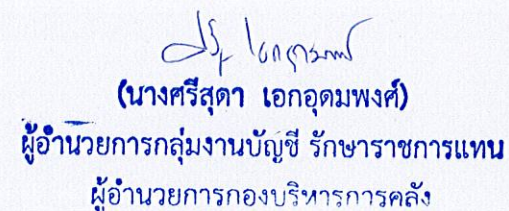 (นางศรีสุดา เอกอุดมพงศ์)
ผู้อำนวยการกลุ่มงานบัญชี รักษาราชการแทน
ผู้อำนวยการกองบริหารการคลัง